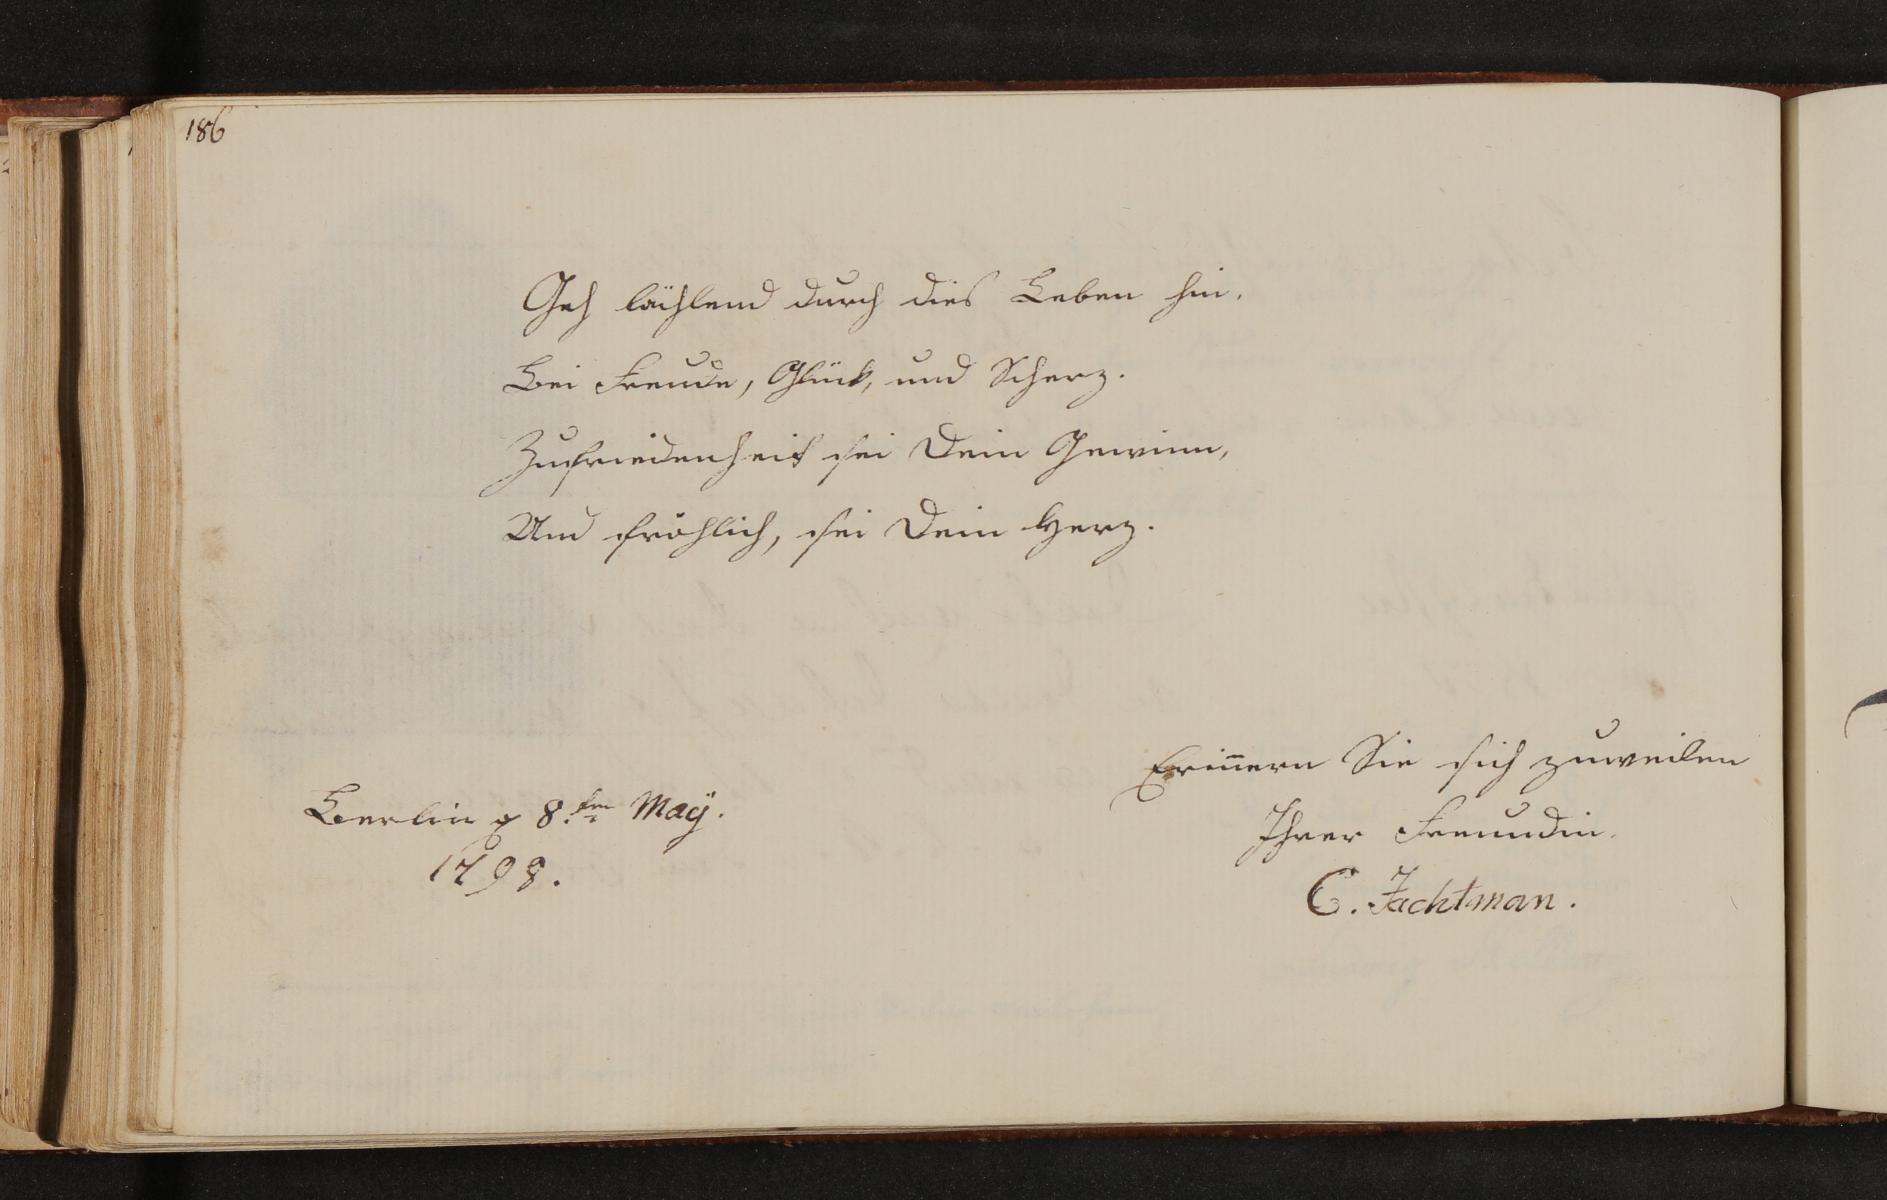 186
Geh lächlend durch dies Leben hin.
Bei Freude, Glück, und Scherz.
Zufriedenheit sei Dein Gewinn,
Und fröhlich, sei Dein Herz.
Erin̄ern Sie sich zuweilen
Ihrer Freundin.
C. Jachtman.
Berlin 8.ten Maÿ.
1798.